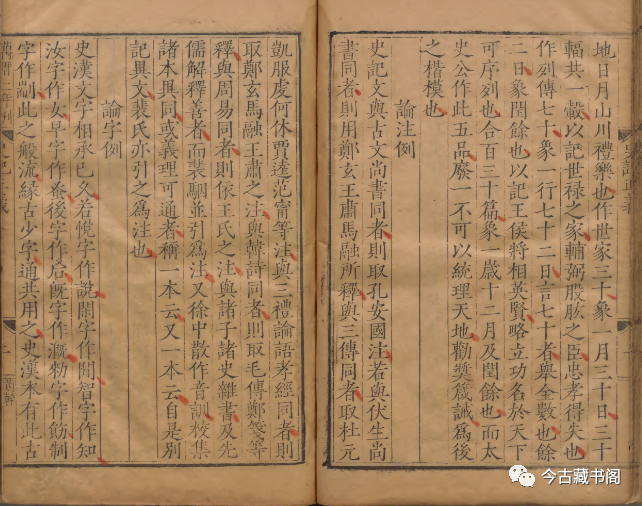 地日月山川禮樂也作世家三十象一月三十日三十
輻共一轂以記世祿之家輔弼股肱之臣忠孝得失也
作列傳七十象一行七十二日言七十者舉全數也餘
二日象閏餘也以記王侯將相英賢略立功名於天下
可序列也合百三十篇象一歲十二月及閏餘也而太
史公作此五品廢一不可以統理天地勸獎箴誡爲後
之楷模也
論注例
史記文與古文尚書同者則取孔安國注若與伏生尚
書同者則用鄭玄王肅馬融所釋與三傳同者取杜元
凱服虔何休賈逵范甯等注與三禮論語孝經同者則
取鄭玄馬融王肅之注與韓詩同者則取毛傳鄭箋等
釋與周易同者則依王氏之注與諸子諸史雜書及先
儒解釋善者而裴駰並引爲注又徐中散作音訓校集
諸本異同或義理可通者稱一本云又一本云自是別
記異文裴氏亦引之爲注也
論字例
史漢文字相承已久若悅字作說閑字作閒智字作知
汝字作女早字作蚤後字作后既字作溉勑字作飭制
字作剬此之般流緣古少字通共用之史漢本有此古
萬曆二年刊
史記正義
今古藏书阁